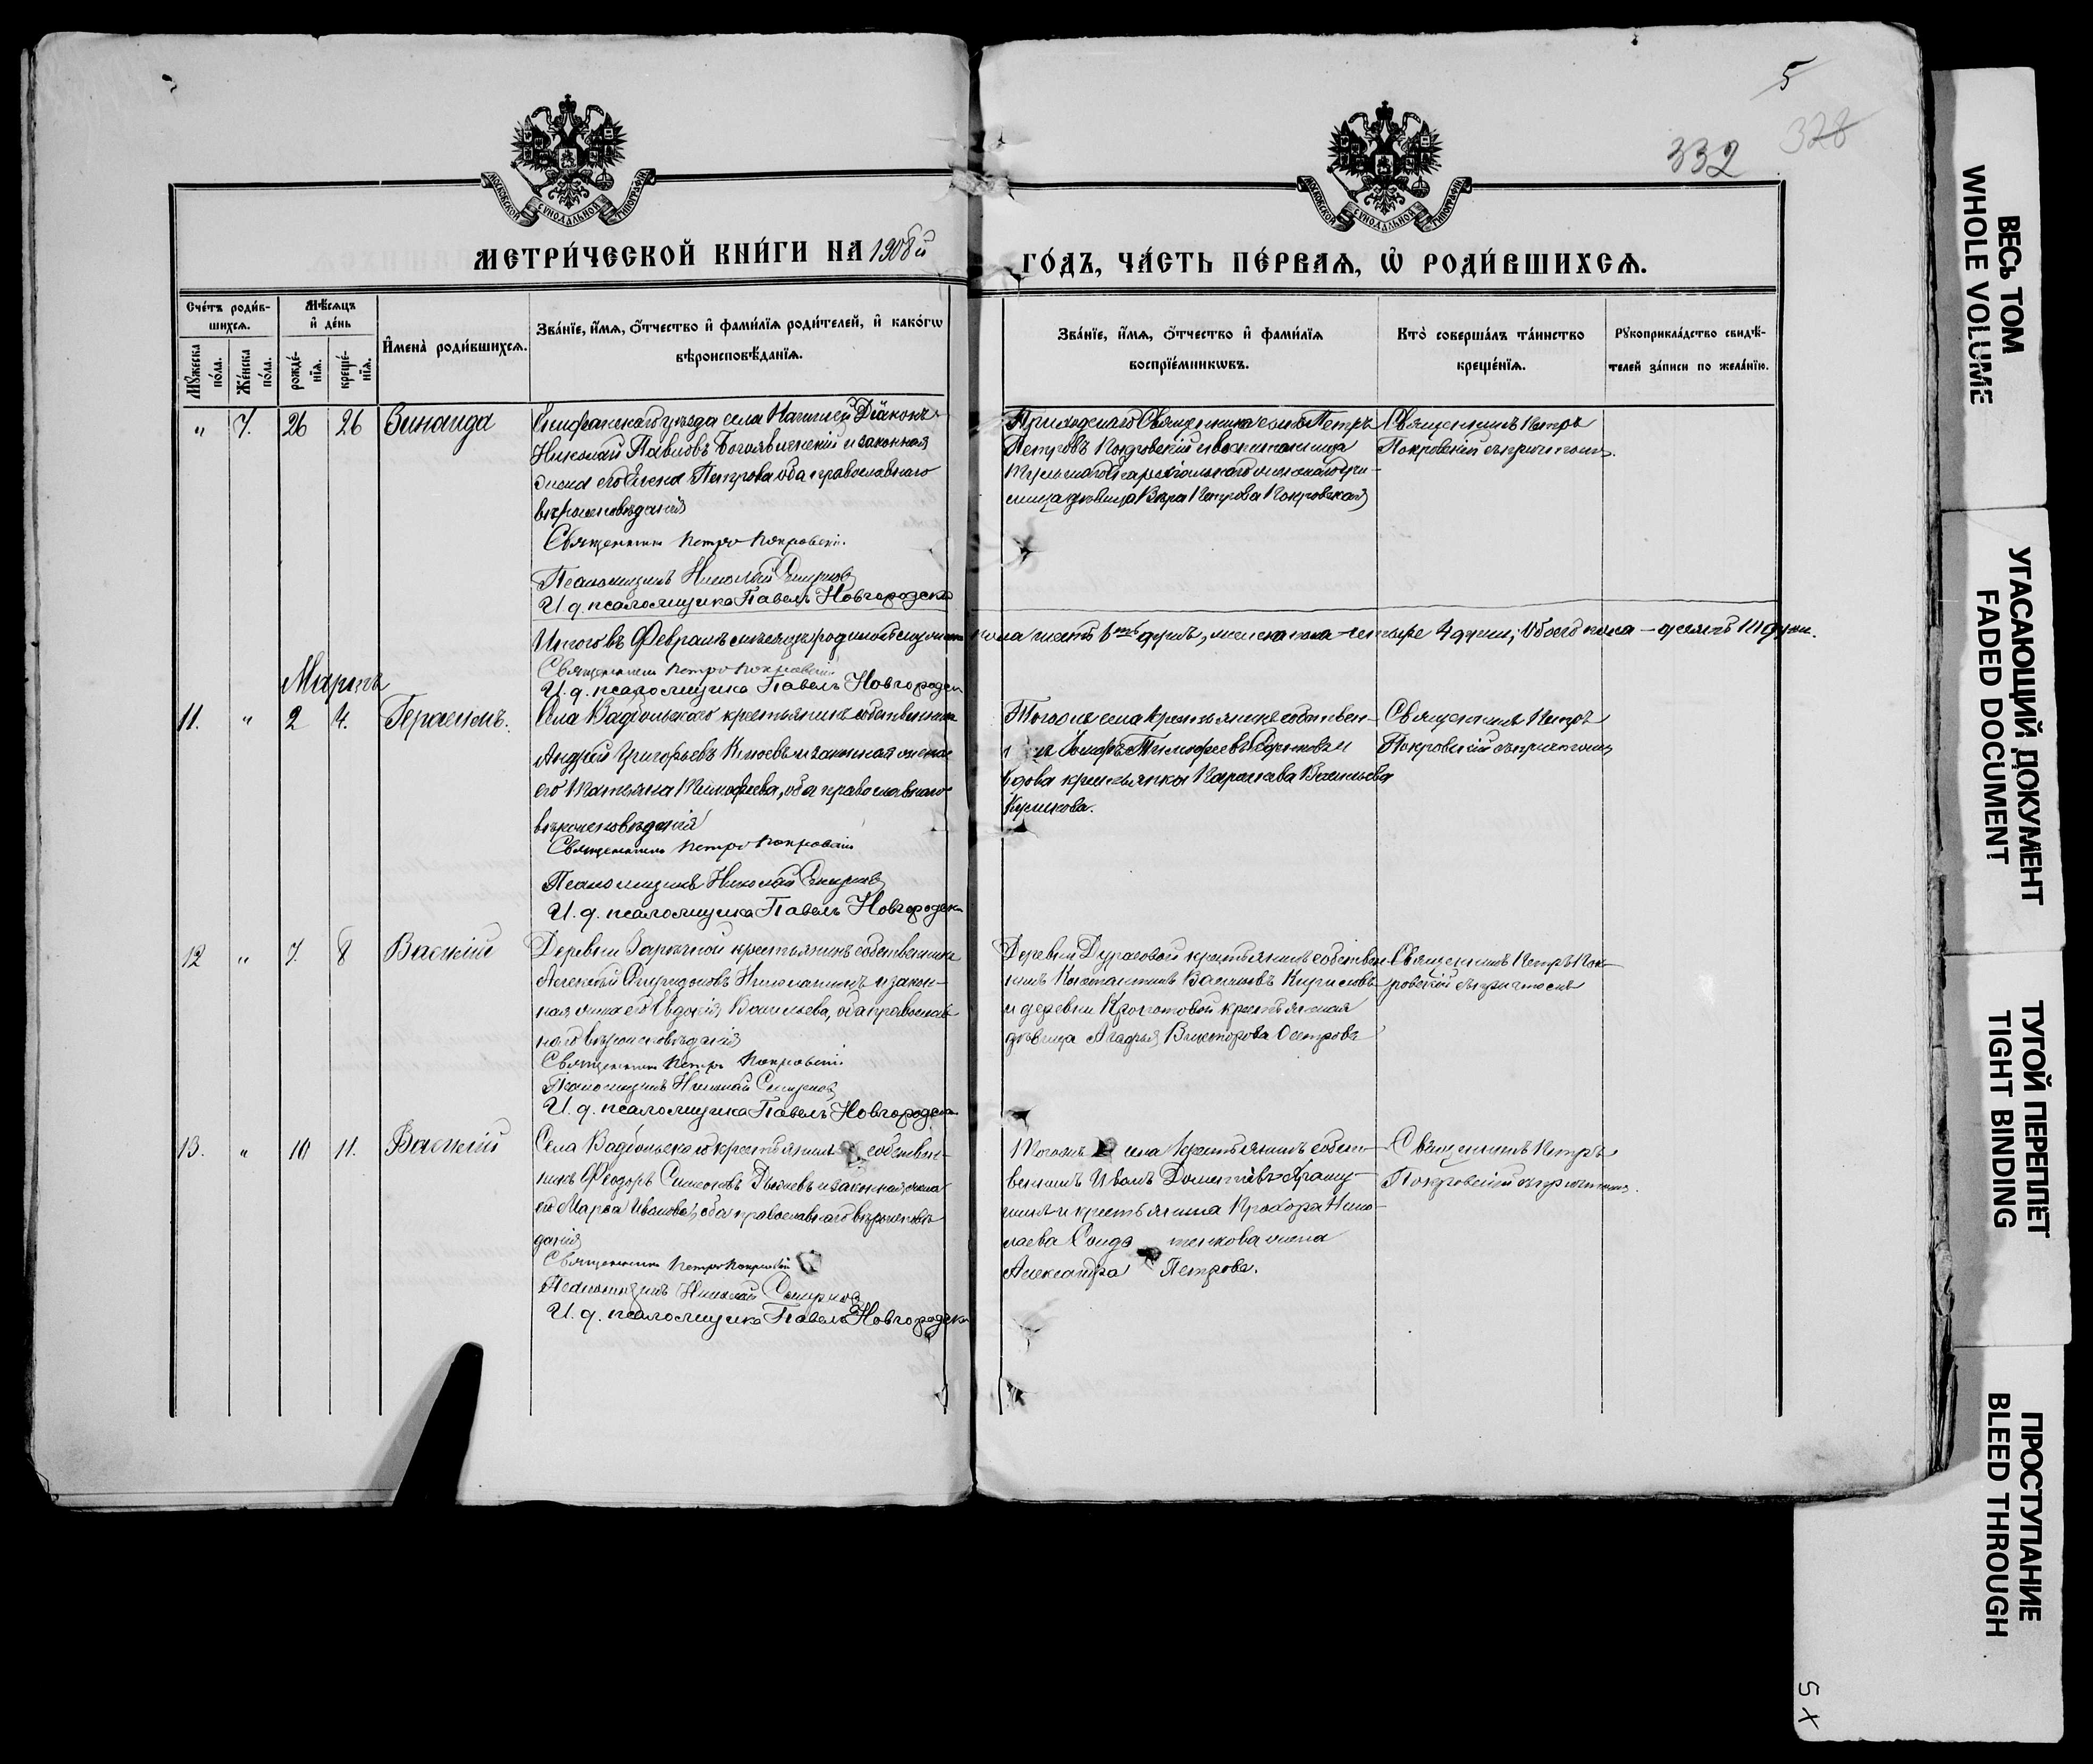 5
332 328
МОСКОВСКОЙ СУНОДАЛЬНОЙ ТИПОГРАФІИ
МОСКОВСКОЙ СУНОДАЛЬНОЙ ТИПОГРАФІИ
МЕТРИ́ЧЕСКОЙ КНИ́ГИ НА 1908й ГО́ДЪ, ЧА́СТЬ ПЕ́РВАѦ, Ѽ РОДИ́ВШИХСѦ.
Сче́тъ роди́в-
шихсѧ.
Мѣ́сѧцъ
и҆ де́нь
Мꙋ́жеска по́ла.
Же́нска по́ла.
рожде́-
нїѧ.
креще́-
нїѧ.
И҆мена̀ роди́вшихсѧ.
Зва́нїе, и҆́мѧ, ѻ҆́тчество и҆ фами́лїѧ роди́телей, и҆ како́гѡ
вѣроисповѣ́данїѧ.
Зва́нїе, и҆́мѧ, ѻ҆́тчество и҆ фами́лїѧ
воспрїе́мникѡвъ.
Кто̀ соверша́лъ та́инство
креще́нїѧ.
Рꙋкоприкла́дство свидѣ́-
телей за́писи по жела́нїю.
" 7. 26 26 Зинаида
Епифанскаго уѣзда села Діаконъ
Николай Павловъ Богоявленскій и законная
жена его Елена Петрова оба православнаго
вѣроисповѣданія
Священникъ Петръ Покровскій.
Псаломщикъ Николай Смирновъ
И. д. псаломщика Павелъ Новгородскі
Приходскаго Священника сынъ Петръ
Петровъ Покровскій и воспитанница
Тульскаго Епархіальнаго женскаго учи-
лища дѣвица Вѣра Петрова Покровская
Священникъ Петръ
Покровскій съ причтомъ.
Итого въ Февралѣ мѣсяцѣ родилось пола шесть 6ть душъ, женска пола четыре 4 души; обоего пола – десять 10 душъ.
Священникъ Петръ Покровскій
И. д. псаломщика Павелъ Новгородск
Мартъ
11. " 2 4. Герасимъ.
Села Вадбольскаго крестьянинъ собственникъ
Андрей Григорьевъ Клюевъ и законная жена
его Татьяна Тимофеева, оба православнаго
вѣроисповѣданія
Священникъ Петръ Покровскій
Псаломщикъ Николай Смирновъ
И. д. псаломщика Павелъ Новгородск
Тогоже села крестьянинъ собствен-
Тимофеевъ и
вдова крестьянка Параскева Васильева
Куликова.
Священникъ Петръ
Покровскій съ причтомъ
12 " 7. 8 Василій
Деревни Зарѣчной крестьянинъ собственникъ
Алексѣй Спиридоновъ и закон-
ная жена его Евдокія Васильева, оба православ-
наго вѣроисповѣданія
Священникъ Петръ Покровскій.
Псаломщикъ Николай Смирновъ
И. д. псаломщика Павелъ Новгородск
Деревни крестьянинъ собствен-
никъ Константинъ Васильевъ Кирилловъ
и деревни Кропотовой крестьянская
дѣвица Агафья Викторова
Священникъ Петръ Пок-
ровскій съ причтомъ
13. " 10 11. Василій
Села Вадбольскаго крестьянинъ собствен-
никъ Феодоръ Симеоновъ и законная жена
его Марѳа Иванова, оба православнаго вѣроисповѣ-
данія
Священникъ Петръ Покровскій
Псаломщикъ Николай Смирновъ
И. д. псаломщика Павелъ Новгородск
Тогожъ села крестьянинъ собст-
венникъ Иванъ
и крестьянина Прохора Нико-
лаева жена
Александра Петрова.
Священникъ Петръ
Покровскій съ причтомъ.
ВЕСЬ ТОМ
WHOLE VOLUME
УГАСАЮЩИЙ ДОКУМЕНТ
FADED DOCUMENT
ТУГОЙ ПЕРЕПЛЕТ
TIGHT BINDING
ПРОСТУПАНИЕ
BLEED THROUGH
5X